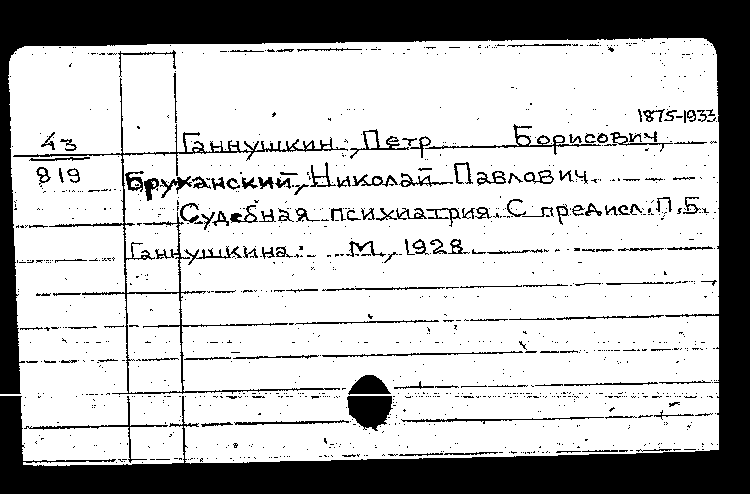 1875-1933
43 Ганнушкин, Петр Борисович,
819 Бруханский, Николай Павлович.
Судебная психиатрия. С предисл. П.Б.
Ганнушкина. М., 1928.